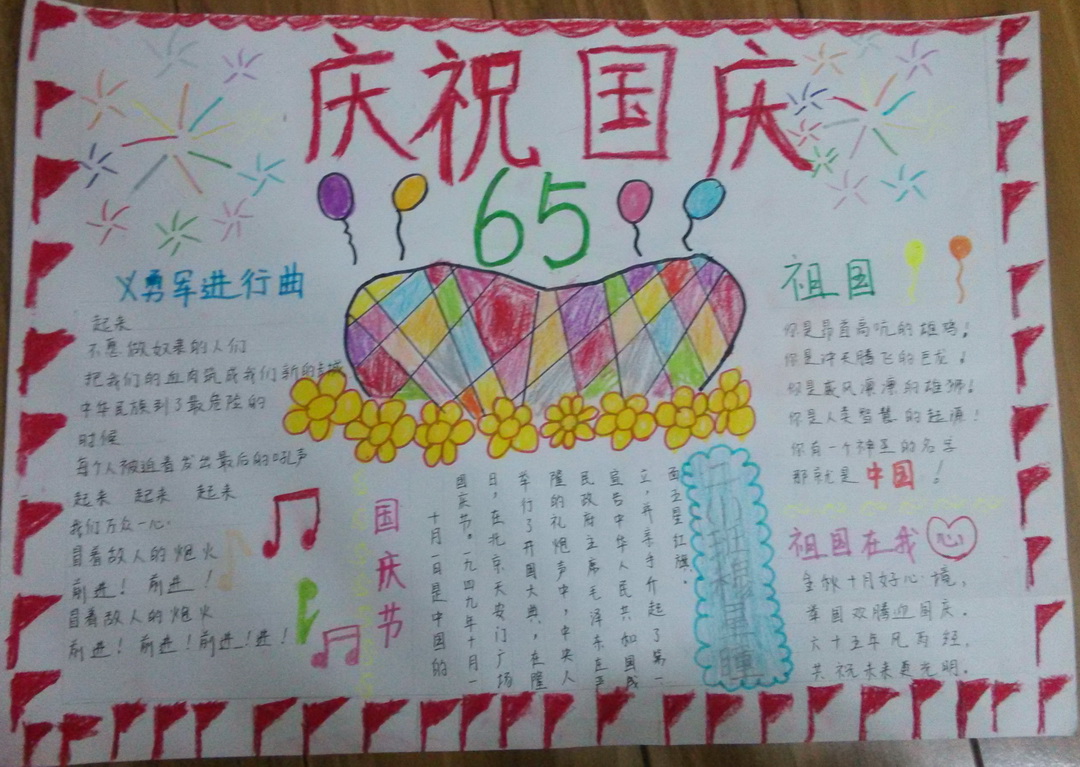 庆祝国庆
65
义勇军进行曲
起来
不愿做奴隶的人们
把我们的血肉筑成我们新的长城
中华民族到了最危险的
时候
每个人被迫着发出最后的吼声
起来 起来 起来
我们万众一心.
冒着敌人的炮火
前进！前进！
冒着敌人的炮火
前进！前进！前进！进！
国庆节
十月一日是中国的
国庆节。一九四九年十月一
日，在北京天安门广场
举行了开国大典，在隆
隆的礼炮声中，中央人
民政府主席毛泽东在
宣告中华人民共和国成
立，并亲手升起了第一
面五星红旗。
祖国
你是昂首高吭的雄鸡！
你是冲天腾飞的巨龙！
你是威风凛凛的雄狮！
你是人类智慧的起源！
你有一个神圣的名字
那就是中国！
祖国在我心
金秋十月好心境，
举国欢腾迎国庆.
六十五年风雨经，
共祝未来更光明.